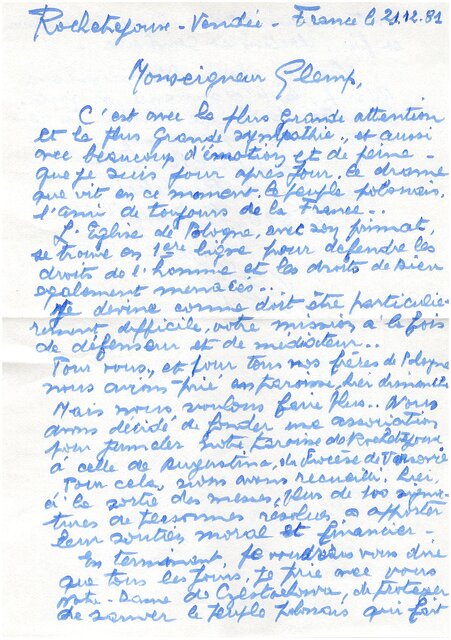 Rocheservière - Vendée - France le 21.12.81
Monseigneur Glemp,
C'est avec la plus grande attention
et la plus grande sympathie, et aussi
avec beaucoup d'émotion et de peine -
que je suis jour après jour, le drame
que vit en ce moment le peuple polonais,
l'ami de toujours de la France...
L'Eglise de Pologne, avec son primat,
se trouve en 1ère ligne pour défendre les
droits de l'homme et les droits de Dieu
également menacés...
Je devine comme doit être particuliè-
rement difficile, votre mission à la fois
de défenseur et de médiateur...
Pour vous, et pour tous nos frères de Pologne
nous avons prié en paroisse, hier dimanche
Mais nous voulons faire plus.. Nous
avons décidé de fonder une association
pour jumeler notre paroisse de
à celle de Augustina, du Diocèse de Varsovie
Pour cela, nous avons recueilli hier,
à la sortie des messes, plus de 100 signa-
tures de personnes résolues à apporter
leur soutien moral et financier -
En terminant, je voudrais vous dire
que tous les jours, je prie avec vous
Notre-Dame de Czestochowa, de protéger
de sauver le peuple polonais qui fait